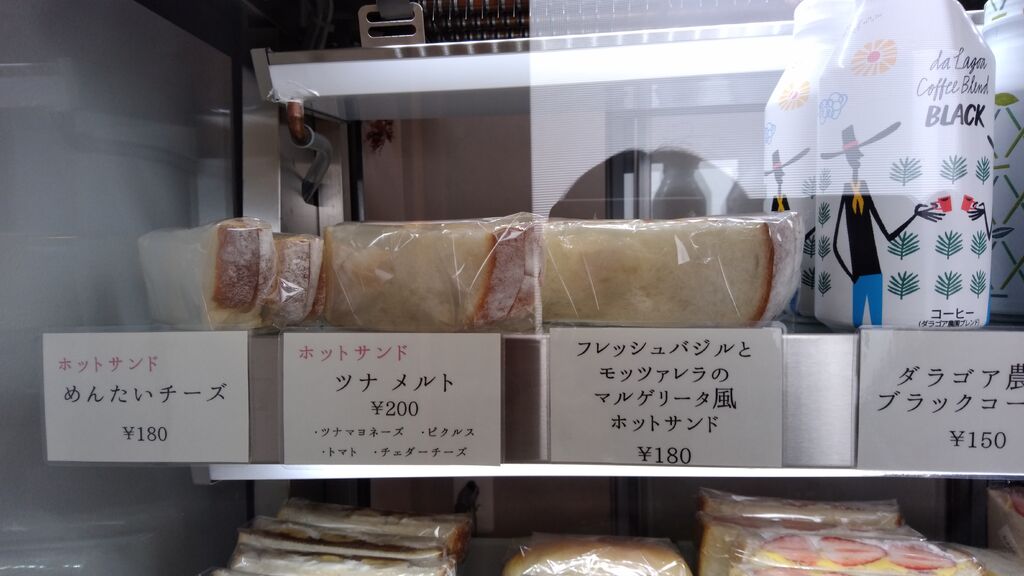 da Lagoa
Coffee Blend
BLACK
コーヒー
(ダラゴア農園ブレンド)
ホットサンド
めんたいチーズ
¥180
ホットサンド
ツナ メルト
¥200
・ツナマヨネーズ ・ピクルス
・トマト ・チェダーチーズ
フレッシュバジルと
モッツァレラの
マルゲリータ風
ホットサンド
¥180
ダラゴア農
ブラックコー
¥150